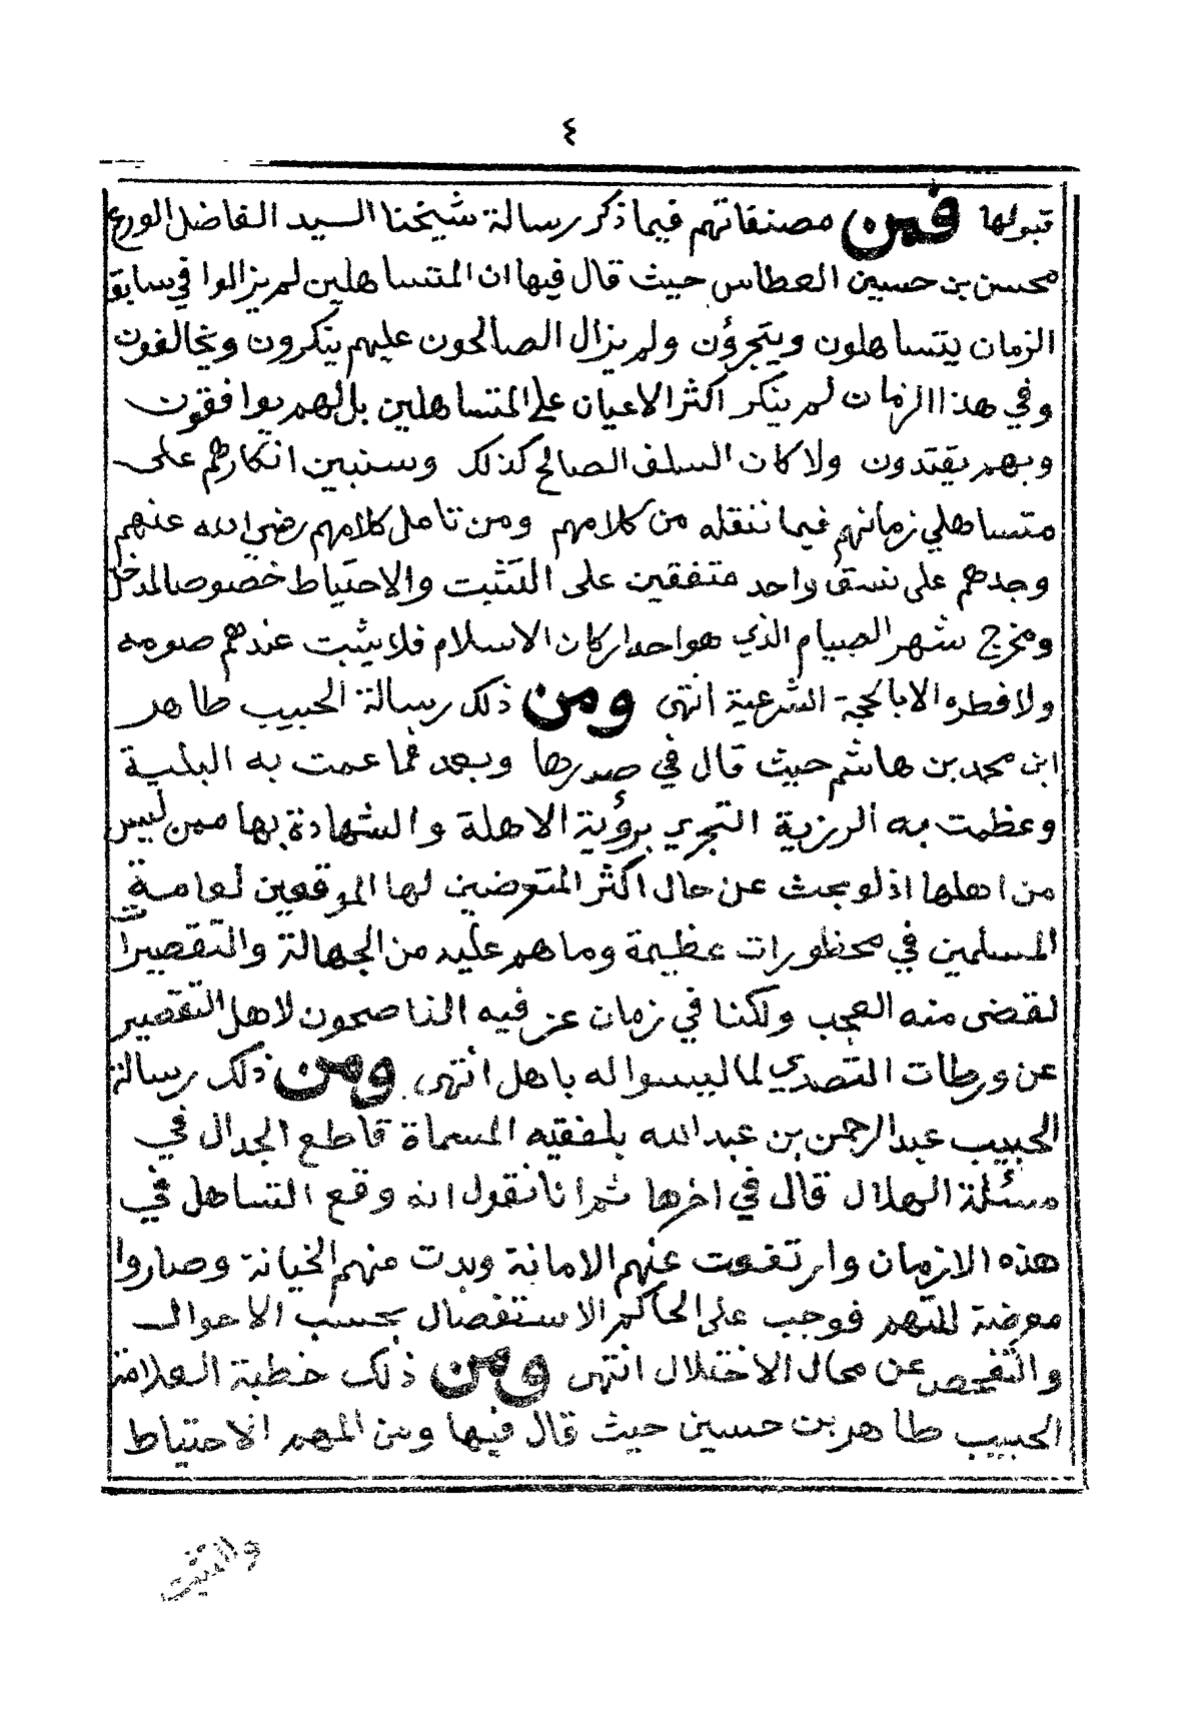 ٤
قبولها فمن مصنفاتهم فيما ذكر رسالة شيخنا السيد الفاضل الورع
محسن بن حسين العطاس حيث قال فيها ان المتساهلين لم يزالوا في سابق
الزمان يتساهلون ويتجرؤن ولم يزال الصالحون عليهم ينكرون ويخالفون
وفي هذا الزمان لم ينكر اكثر الاعيان على المتساهلين بل لهم يوافقون
وبهم يقتدون ولا كان السلف الصالح كذلك وسنبين انكارهم على
متساهلي زمانهم فيما ننقله من كلامهم ومن تامل كلامهم رضي الله عنهم
وجدهم على نسق واحد متفقين على التثبت والاحتياط خصوصا لمدخل
ومخرج شهر الصيام الذي هو احد اركان الاسلام فلا يثبت عندهم صومه
ولا فطره الا بالحجة الشرعية انتهى ومن ذلك رسالة الحبيب طاهر
ابن محمد بن هاشم حيث قال في صدرها وبعد فما عمت به البلية
وعظمت به الرزية التجري برؤية الاهلة والشهادة بها ممن ليس
من اهلها اذ لو بحث عن حال اكثر المتعرضين لها الموقعين لعامة
المسلمين في محظورات عظيمة وما هم عليه من الجهالة والتقصيرات
لقضى منه العجب ولكنا في زمان عز فيه الناصحون لاهل التقصير
عن ورطات التصدي لما ليسوا له باهل انتهى ومن ذلك رسالة
الحبيب عبد الرحمن بن عبد الله بلفقيه المسماة قاطع الجدال في
مسئلة الهلال قال في اخرها ثم انا نقول انه وقع التساهل في
هذه الازمان وارتفعت عنهم الامانة وبدت منهم الخيانة وصاروا
معرضة للتهم فوجب على الحاكم الاستفصال بحسب الاحوال
والتفحص عن محال الاختلال انتهى ومن ذلك خطبة العلامة
الحبيب طاهر بن حسين حيث قال فيها ومن المهم الاحتياط
والتثبت